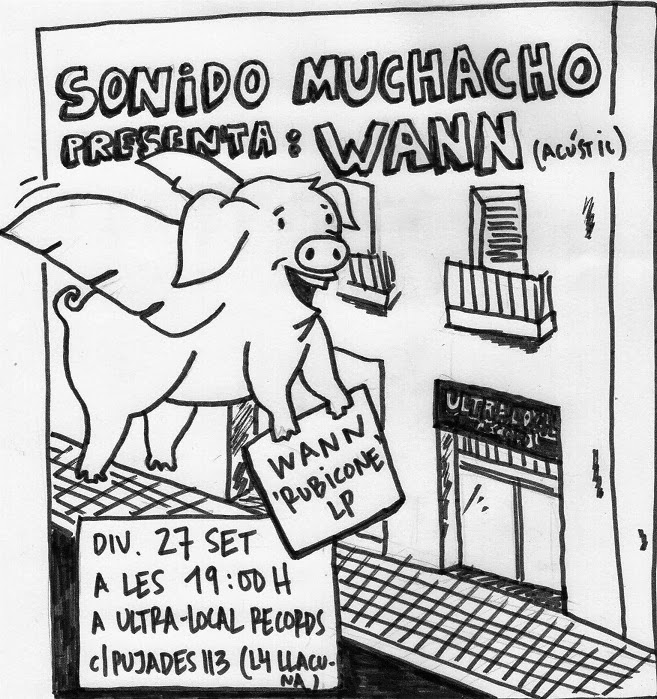 SONIDO MUCHACHO
PRESENTA: WANN (ACÚSTIC)
WANN
'RUBICONE'
LP
ULTRA-LOCAL
RECORDS
DIV. 27 SET
A LES 19:00H
A ULTRA-LOCAL RECORDS
C/PUJADES 113 (L4 LLACU-
NA)